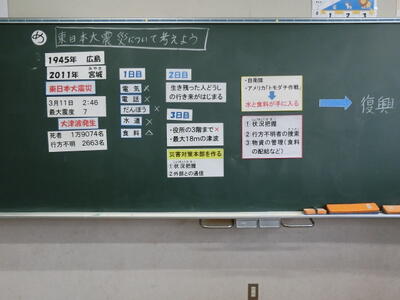 め 東日本大震災について考えよう
1945年 広島
2011年 宮城
みやぎ
東日本大震災
3月11日 2:46
最大震度 7
大津波発生
死者 1万9074名
行方不明 2663名
1日目
電気 ×
電話 ×
だんぼう ×
水道 ×
食料 △
2日目
生き残った人どうし
の行き来がはじまる
3日目
・役所の3階まで×
・最大18mの津波
災害対策本部を作る
1 状況把握
2 外部との通信
・自衛隊
・アメリカ「トモダチ作戦」
水と食料が手に入る
1 状況把握
2 行方不明者の捜索
3 物資の管理(食料
の配給など)
復興